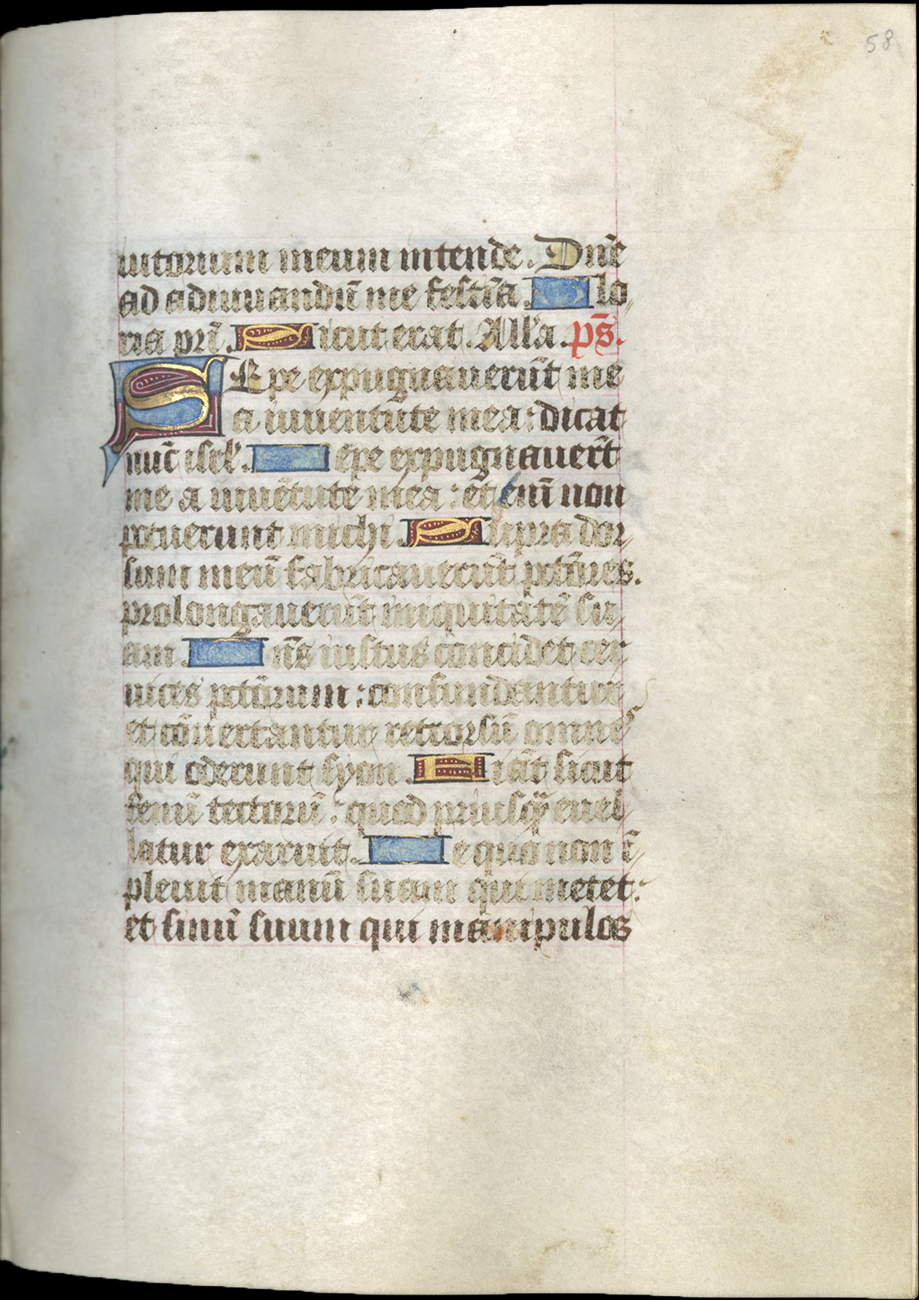 58
iutorium meum intende. Dñe
ad adiuuandū me festīa. lo
ria pri. Sicut erat. All'a. ps̄.
SEpe expugnauerūt me
a iuuentute mea : dicat
nūc isrl'. epe expugnauerūt
me a iuuētute mea : etenī non
potuerunt michi. Supra dor
sum meū fabricauerūt pctōres.
prolongauerūt iniquitatē su
am. ns̄ iustus concidet cer
uices pctōrum : confundantur
et cōuertantur retrorsū omnes
qui oderunt syon. Fiāt sicut
fenū tectorū : quod priusq̄ euel
latur exaruit. e quo non ī
pleuit manū suam qui metet :
et sinū suum qui manipulos